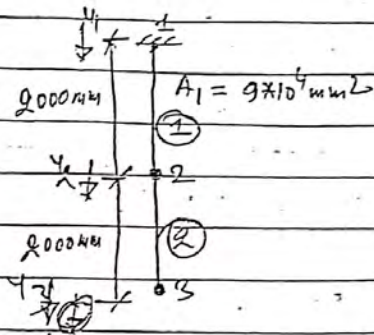 u₁ 1
2000mm A₁ = 9×10⁴mm²
①
u₂ 2
2000mm ②
3